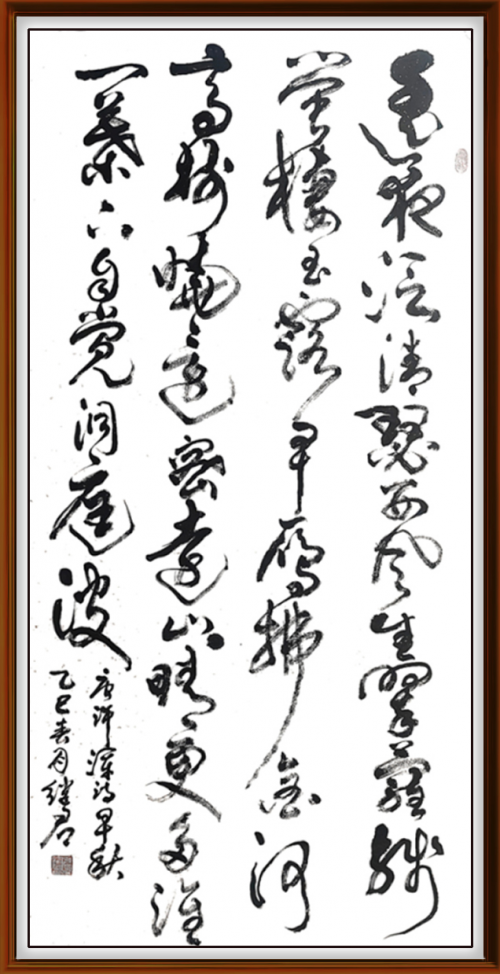 遥夜泛清瑟西风生翠萝残
萤棲玉露早雁拂金河
高树晓还密远山晴更多淮
一葉下自觉洞庭波
唐许浑诗早秋
乙巳春月继君